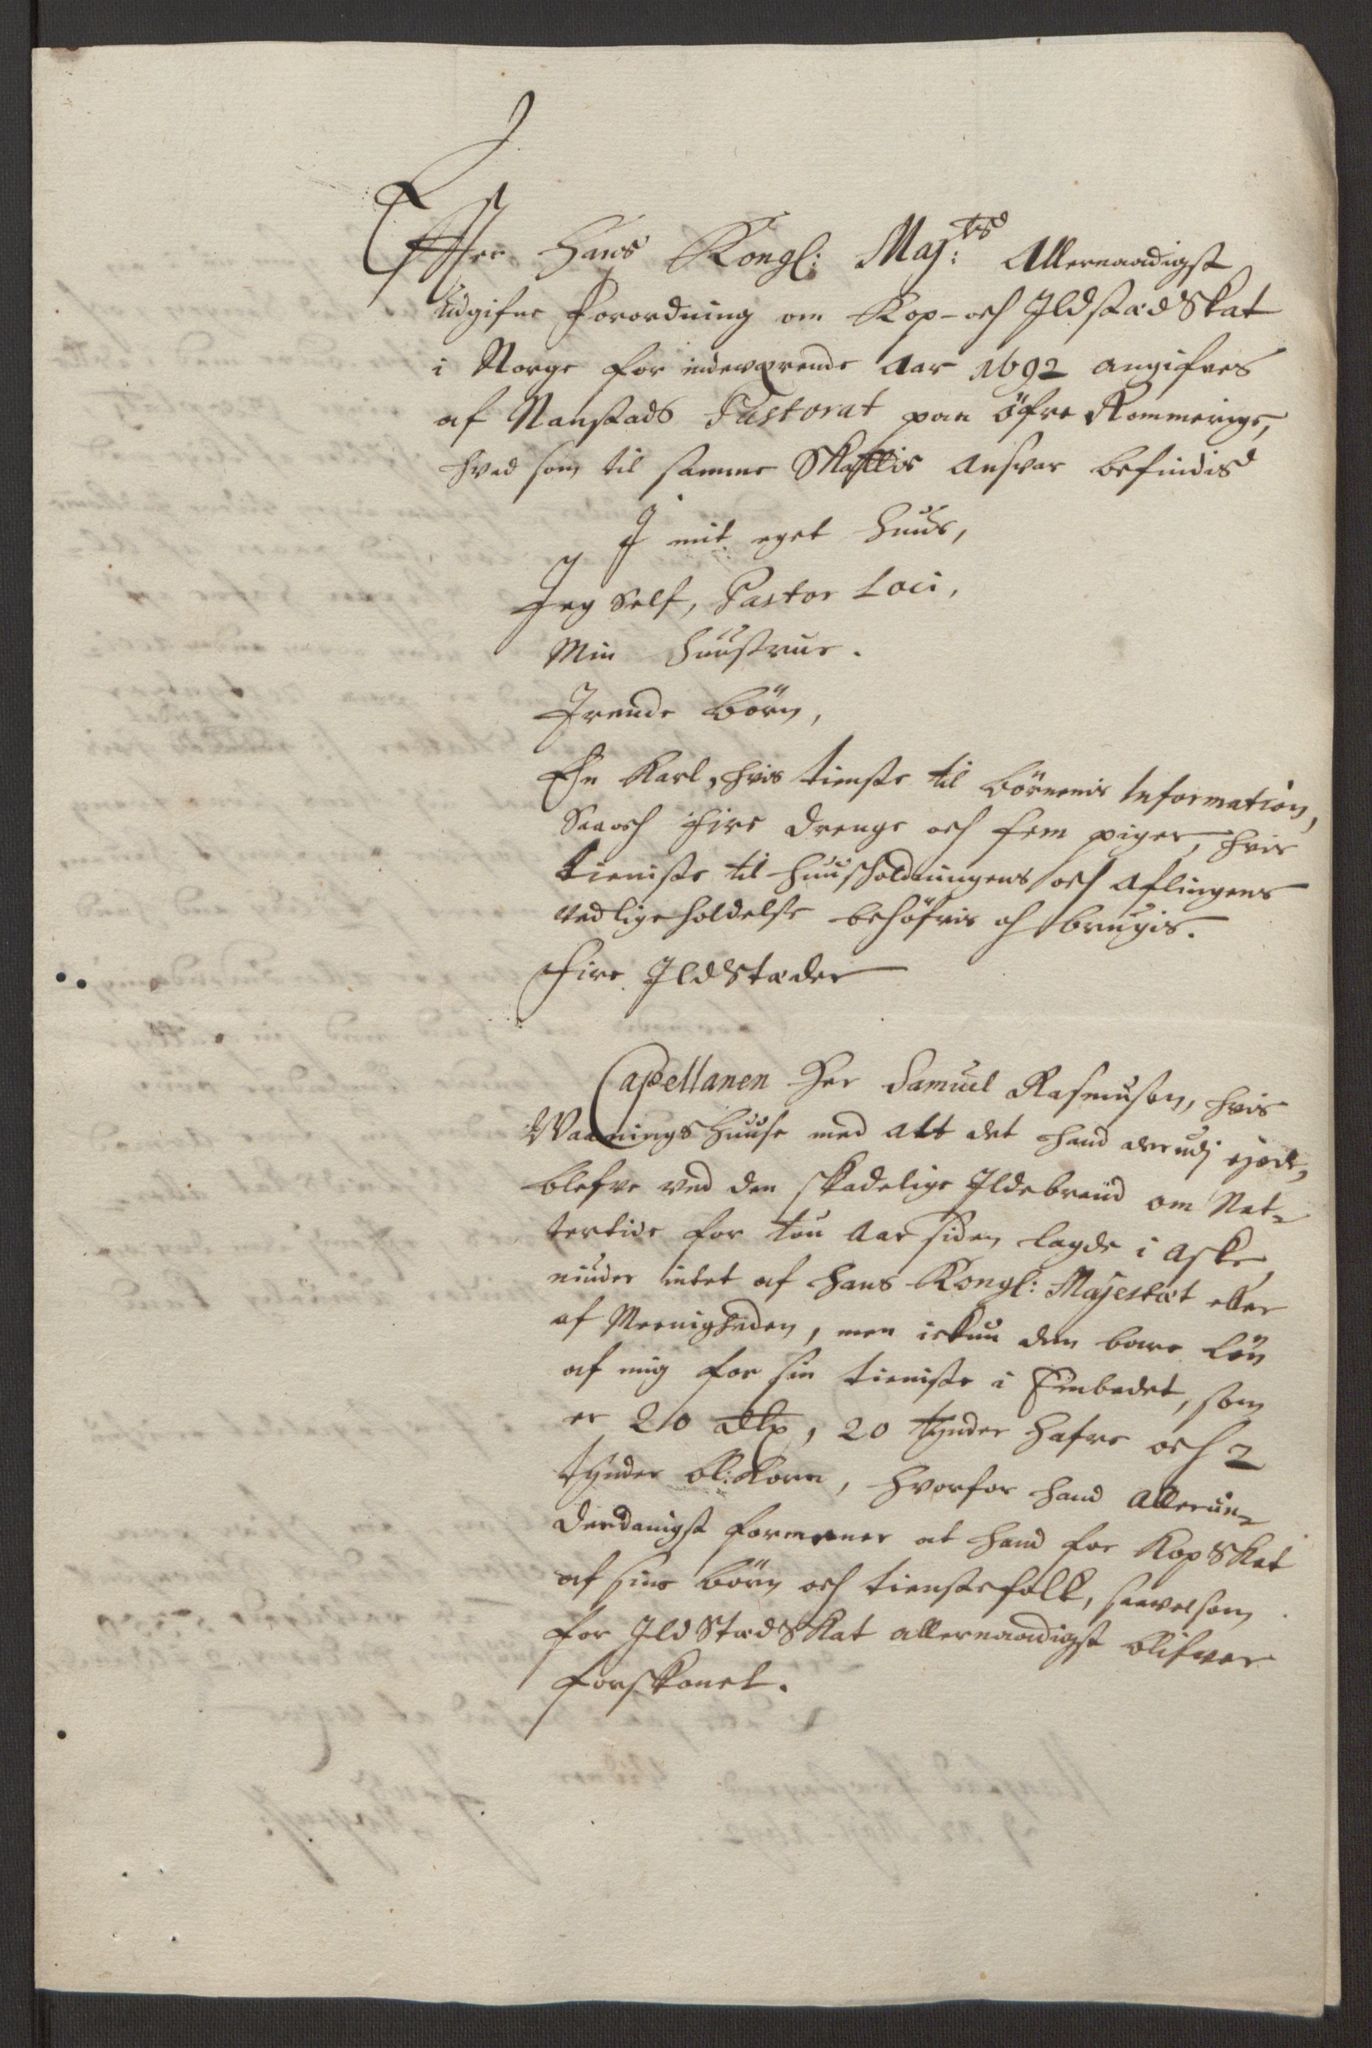 Efter Hans Kongl: Maj:ts Allernaadigst
Udgifne Forordning om Kop- och Ildstæd Skat
i Norge for indeværende Aar 1692 angifves
af Nanstads Pastorat paa Öfre Rommerige,
hvad som til samme Skattis Ansvar befindis
I mit eget Huus,
Jeg Self, Pastor Loci,
Min Huustrue.
Trende Börn,
Een Karl, hvis tieniste til Börnenis Information,
Saa och Fire Drenge och Fem piger, hvis
tieniste til Huusholdningens och Aflingens
vedligeholdelse behöfvis och brugis.
Fire Ildstæder
Capellanen Her Samuel Rasmusön, hvis
Vaanings Huuse med alt det hand derudj ejede,
blefve ved den skadelige Ildebrand om Nat-
tertide for tou Aar siden lagde i Aske,
niuder intet af Hans Kongl: Majestæt eller
af Meenigheden, men ickun den bare Lön
af mig for sin tieniste i Embedet, som
er 20 Rdlr, 20 tynder Hafre och 2
tynder bl:Korn, hvorfor hand Allerun-
derdanigst formener at hand for Kop Skat
af sine Börn och tienistefolk, saavelsom
for Ildstæd Skat allernaadigst blifver
forskonet.